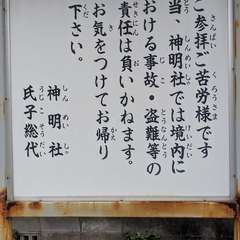 ご参拝ご苦労様です
当、神明社では境内に
おける事故・盗難等の
責任は負いかねます。
お気をつけてお帰り
下さい。
神明社
氏子総代